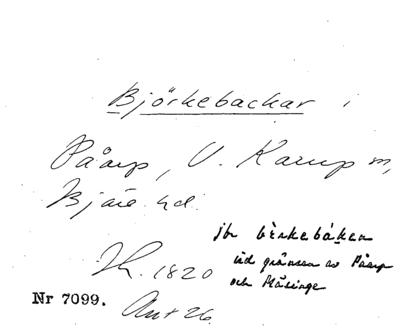 Björkebackar i
Påarp, V. Karup sn,
Bjäre hd.
jfr bèrkebákan
vid gränsen av Påarp
och Måsinge
Th. 1820
Nr 7099. Ant 26